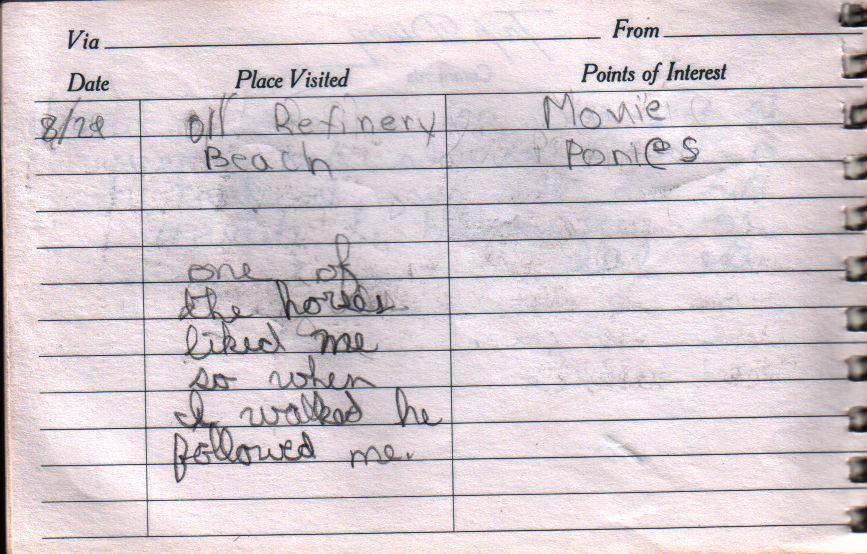 Via From
Date Place Visited Points of Interest
Oil Refinery Movie
Beach Ponies
one of
the horses
liked me
so when
I walked he
followed me.